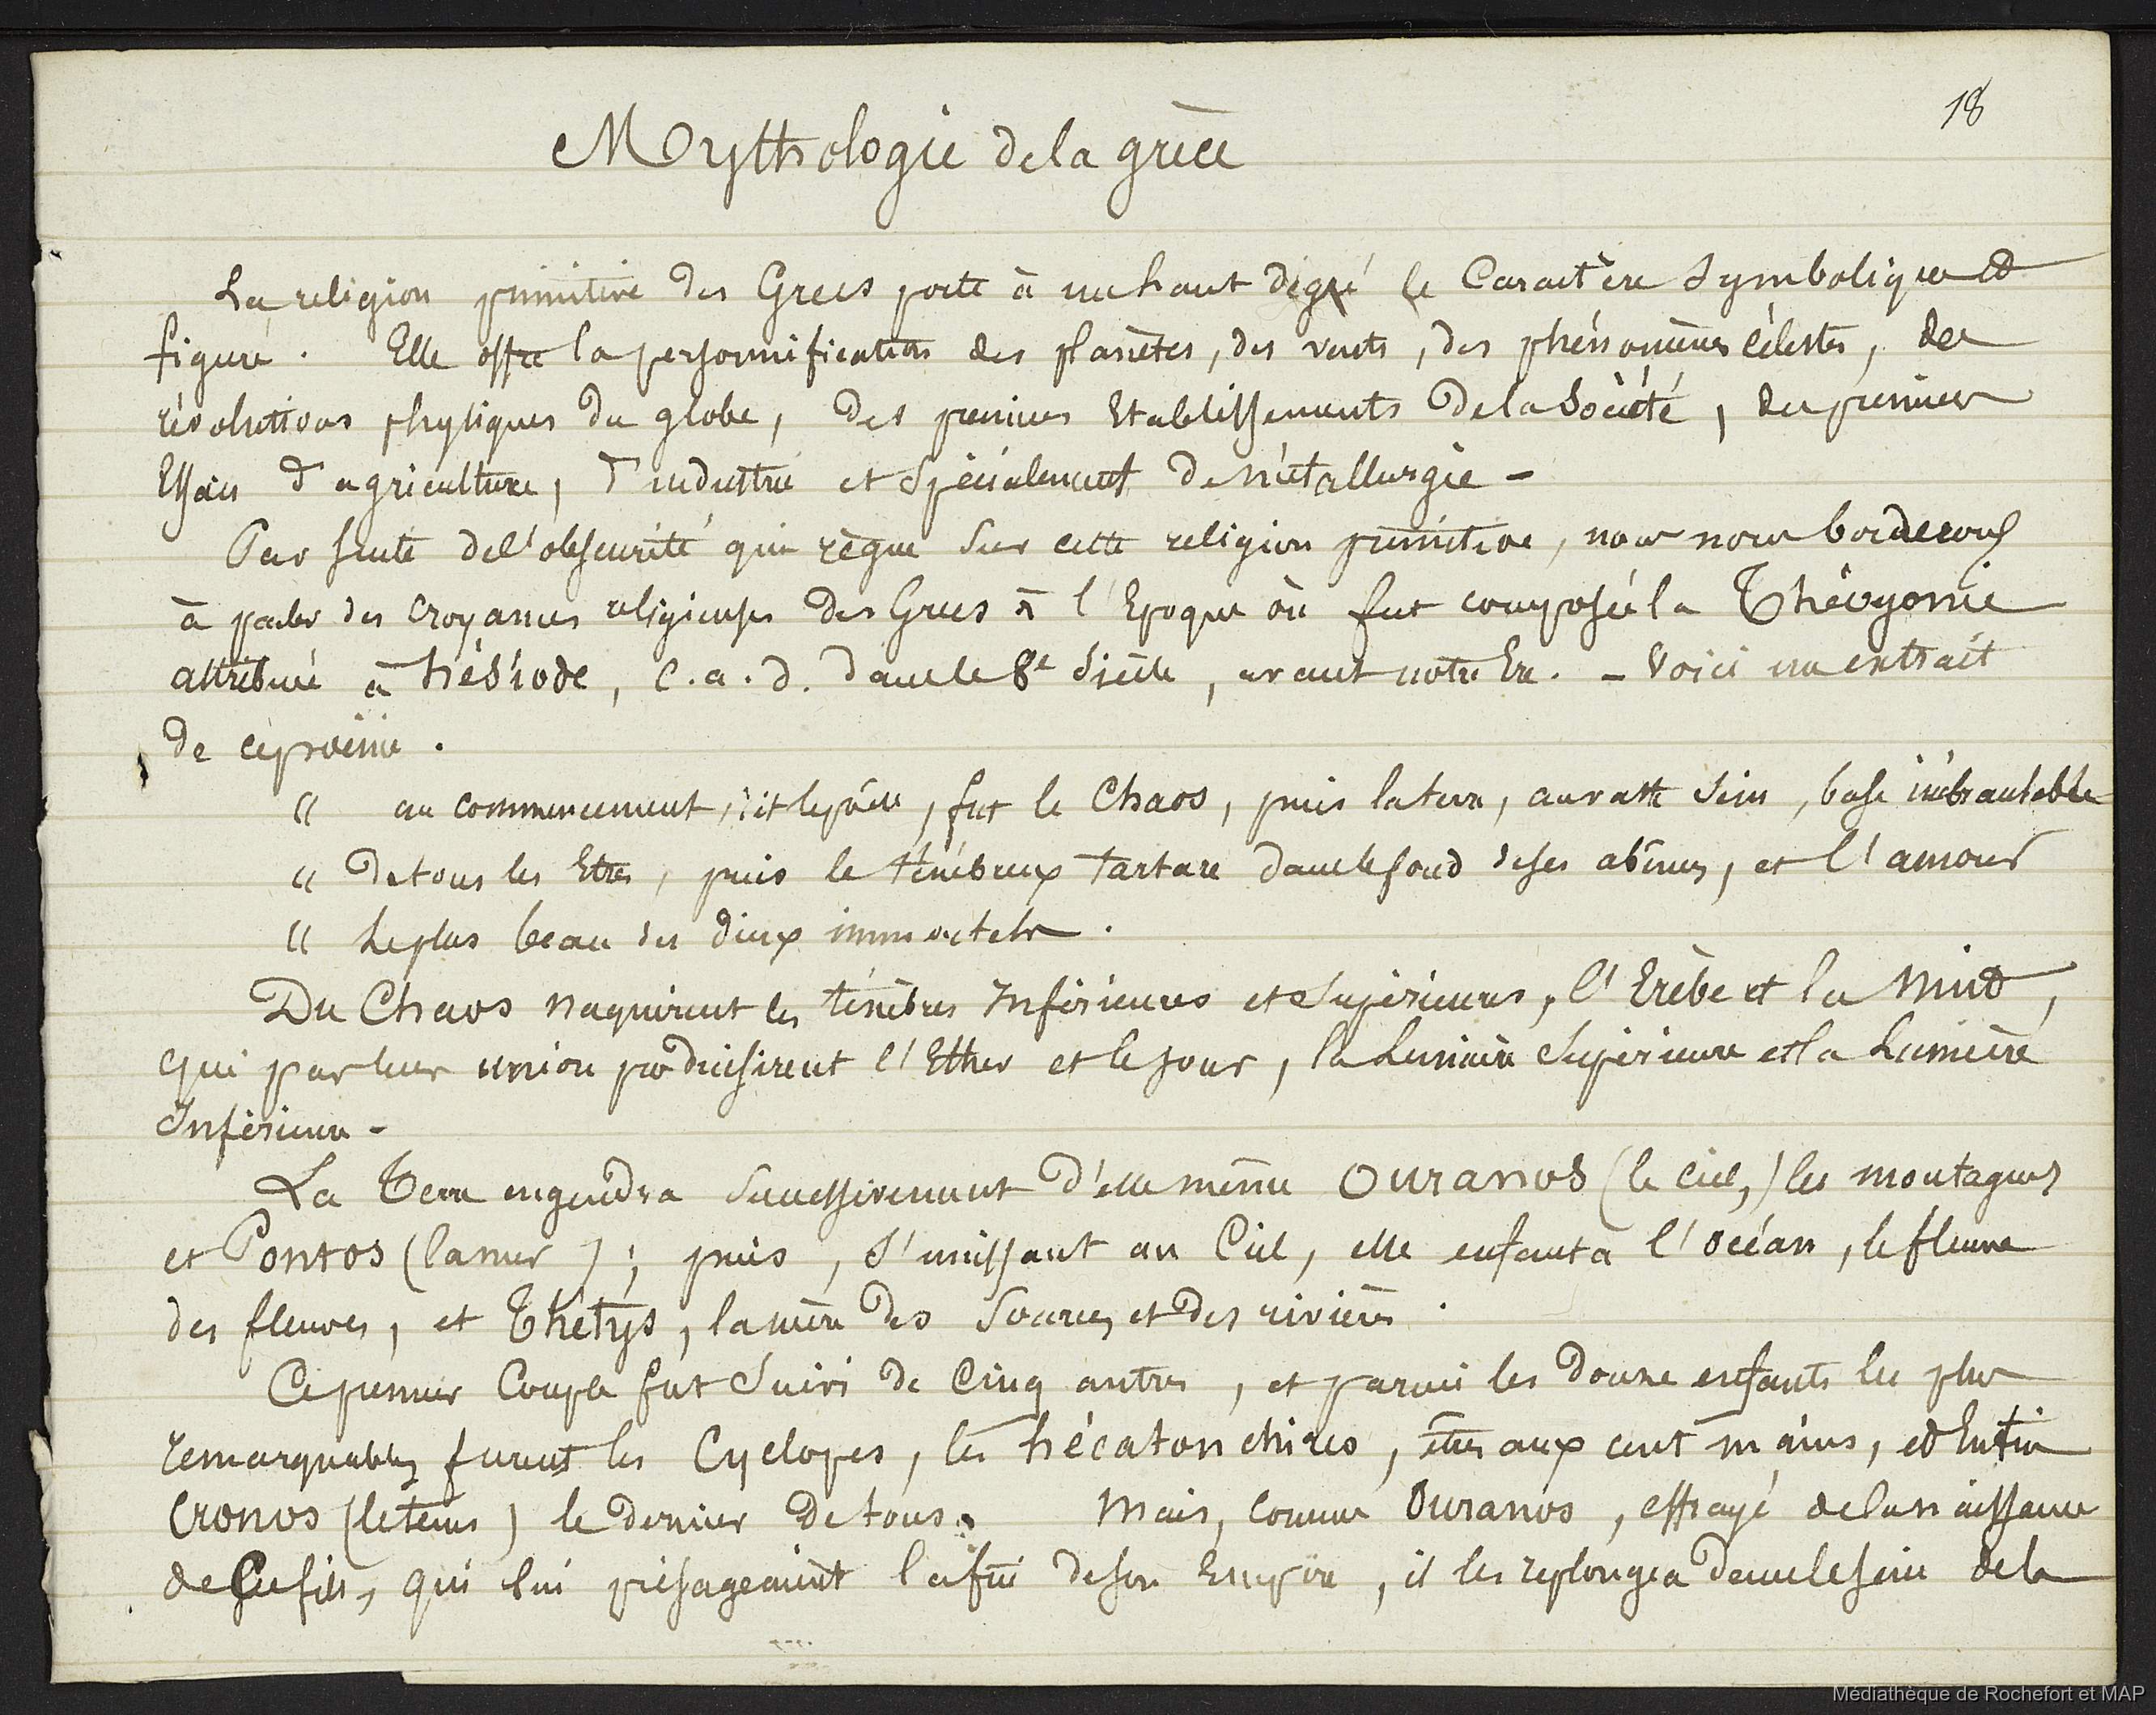 18
Mythologie de la grèce
La religion primitive des Grecs porte à un haut degré le Caractère Symbolique et
figuré. Elle offre la personnification des planètes, des vents, des phénomènes célestes, des
révolutions physiques du globe, des premiers Etablissements de la Société, des premiers
Essais d'agriculture, d'industrie et Spécialement de métallurgie -
Par suite de l'obscurité qui règne sur cette religion primitive, nous nous borderons
à parler des croyances religieuses des Grecs à l'Epoque où fut composée la Théogonie
attribuée à hésiode, c.a.d. dans le 8e Siècle, avant notre Ere. - Voici un extrait
de ce poëme.
" au commencement, dit le poëte, fut le Chaos, puis la terre, au vaste Sein, base inébranlable
" de tous les Etres, puis le ténébreux Tartare dans le fond de ses abîmes, et l'amour
" Le plus beau des dieux immortels.
Du Chaos naquirent les ténèbres Inférieures et Supérieures, l'Erèbe et la Nuit,
qui par leur union produisirent l'Ether et le jour, la Lumière Supérieure et la Lumière
Inférieure -
La Terre engendra Successivement d'elle même Ouranos (le Ciel,) les montagnes
et Pontos (la mer); puis, s'unissant au Ciel, elle enfanta l'Océan, le fleuve
des fleuves, et Thétys, la mère des Sources et des rivières.
Ce premier Couple fut Suivi de Cinq autres, et parmi les douze enfants les plus
remarquables furent les Cyclopes, les hécatonchires, êtres aux cent mains, et Enfin
Cronos (le tems) le dernier de tous. Mais, comme Ouranos, effrayé de la naissance
de Ces fils, qui lui présageaient la fin de son Empire, il les replongea dans le sein de la
Médiathèque de Rochefort et MAP